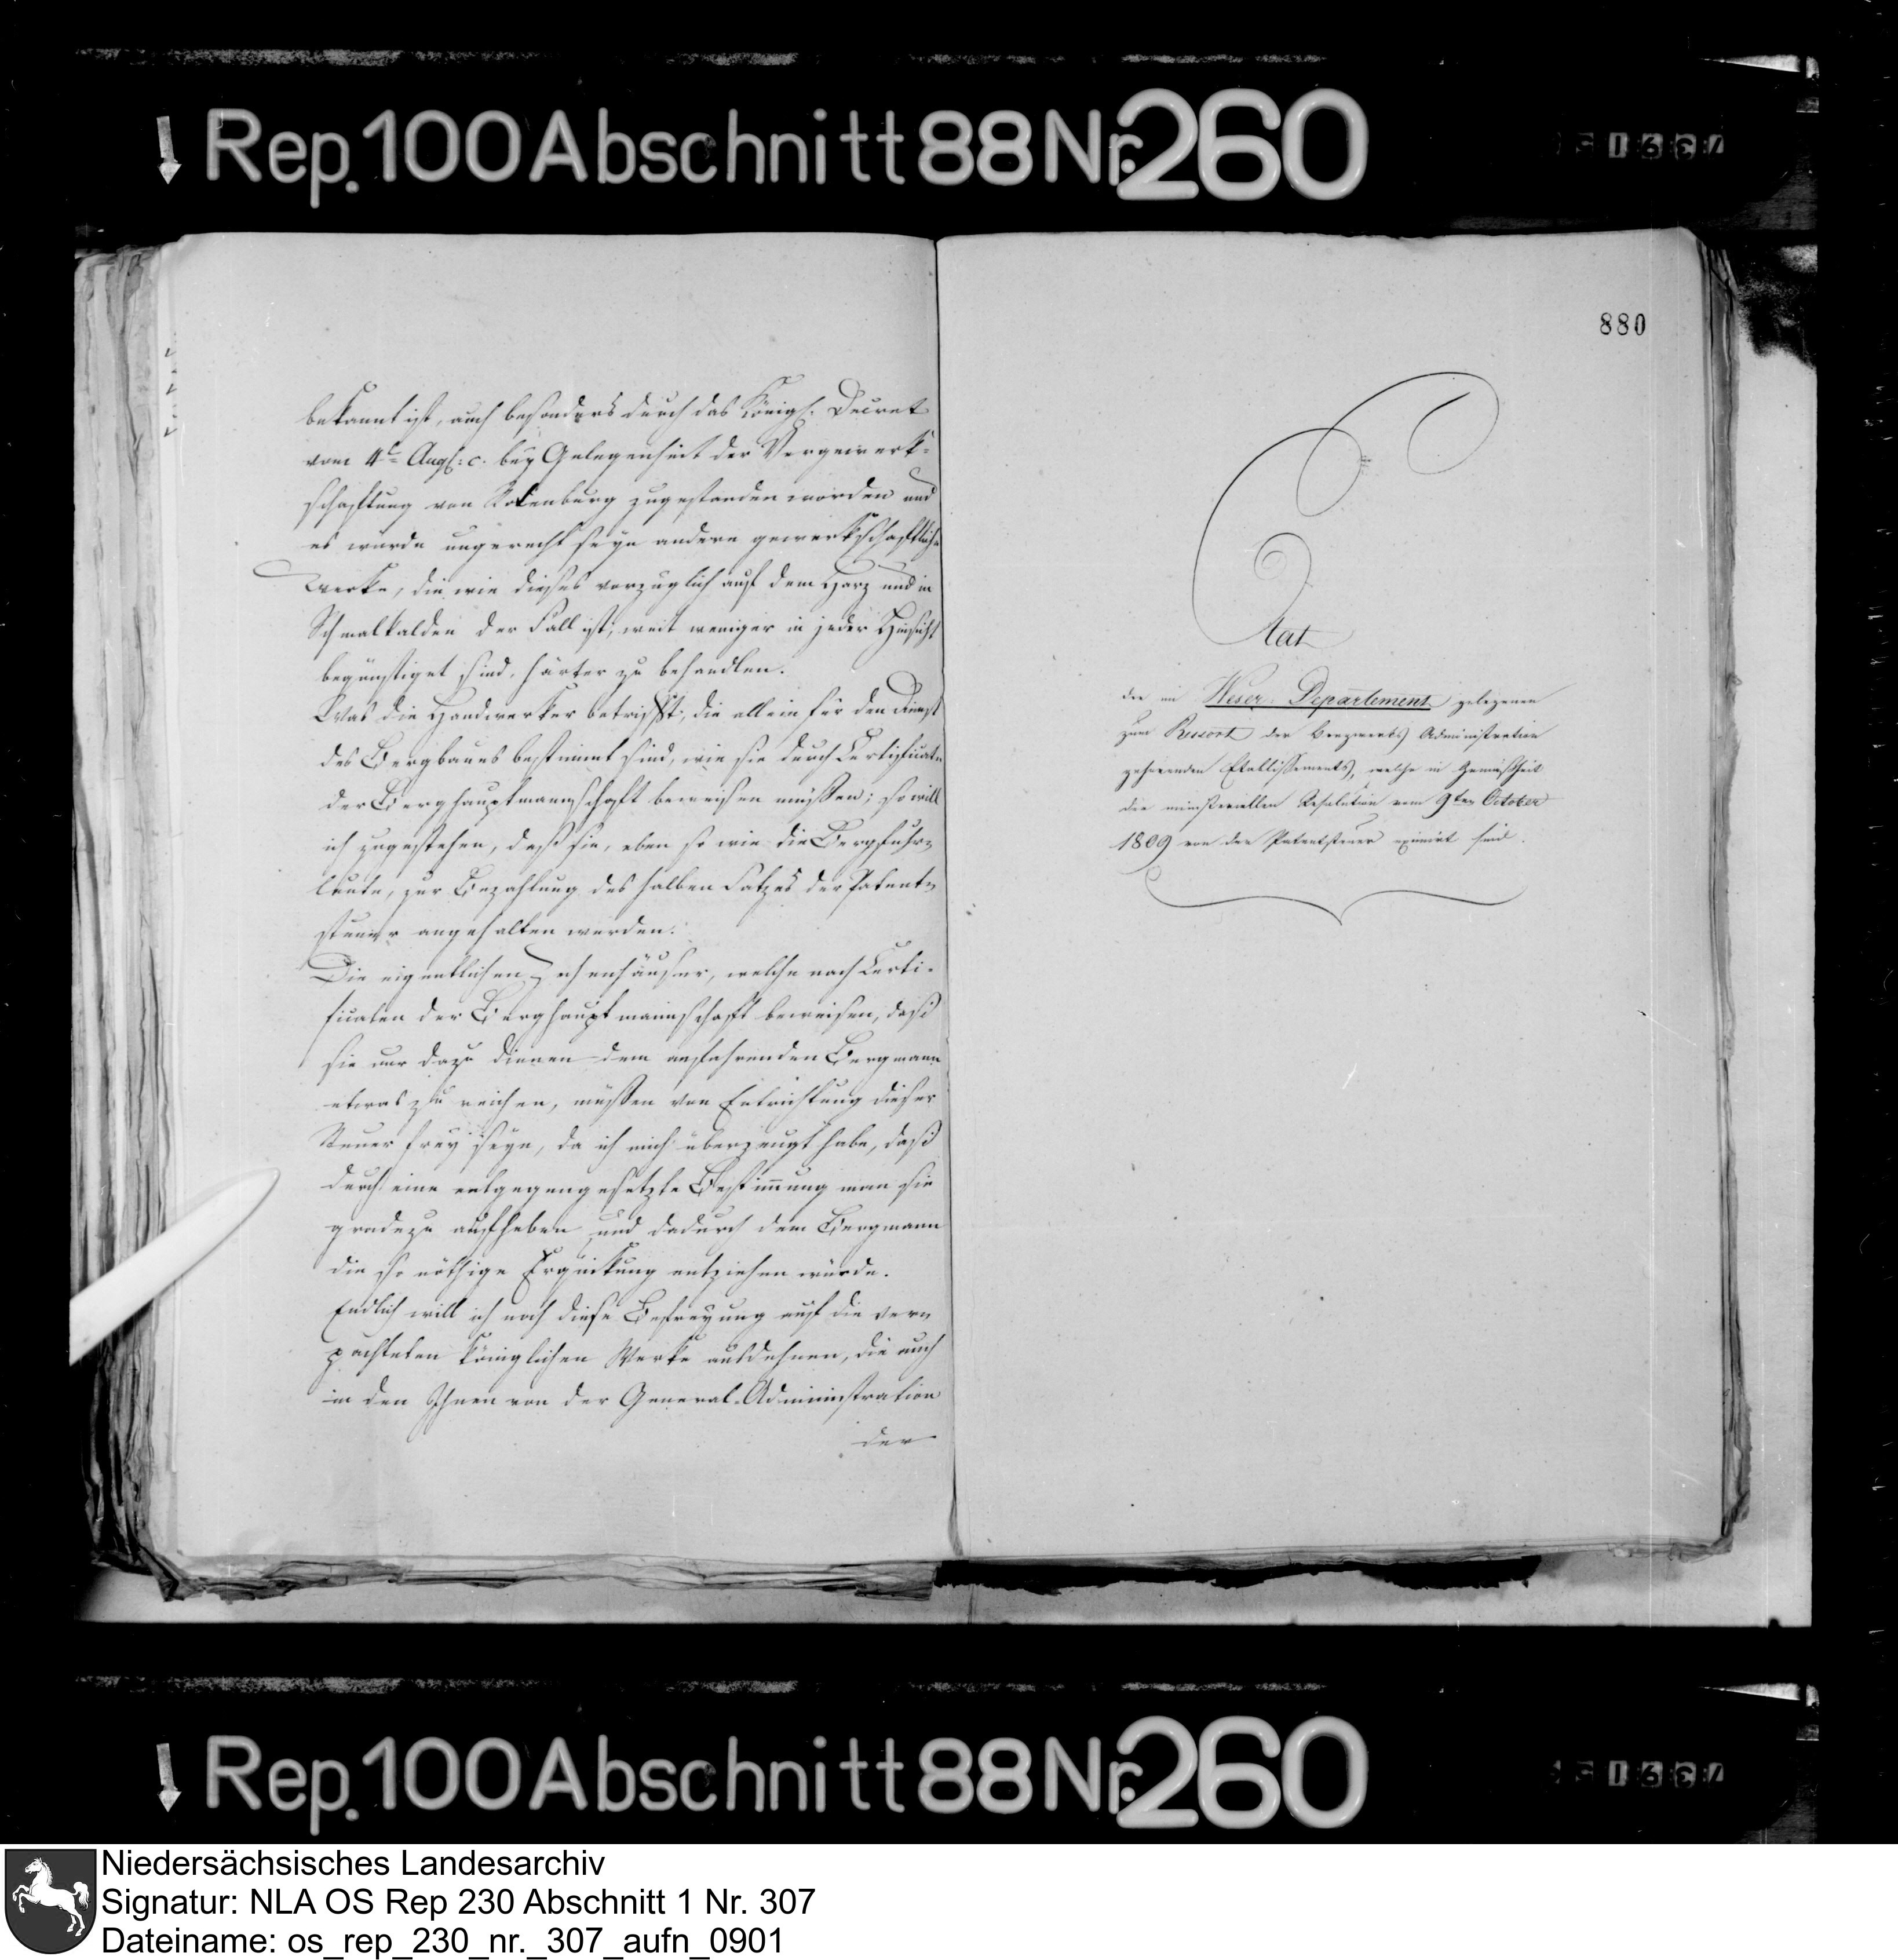 Rep. 100 Abschnitt 88 Nr. 260
bekannt ist, auch besonders durch das Königl. Decret
vom 4t Aug. c. bey Gelegenheit der Vergewerk-
schaftung von Rotenburg zugestanden worden und
es würde ungerecht seyn andere gewerkschaftliche
Werke, die wie dieses vorzüglich auf dem Harz und in
Schmalkalden der Fall ist, weit weniger in jeder Hinsicht
begünstiget sind, härter zu behandlen.
Was die Handwerker betrifft, die allein für den Dienst
des Bergbaues bestimmt sind, wie sie durch Certificate
der Berghauptmannschaft beweisen müßen; so will
ich zugestehen, daß sie, eben so wie die Bergfuhr-
leute, zur Bezahlung des halben Satzes der Patent-
steuer angehalten werden.
Die eigentlichen Zechenhäuser, welche nach Certi-
ficaten der Berghauptmannschaft beweisen, daß
sie nur dazu dienen dem anfahrenden Bergmann
etwas zu reichen, müßen von Entrichtung dieser
Steuer frey seyn, da ich mich überzeugt habe, daß
durch eine entgegengesetzte Bestimmung man sie
gradezu aufheben und dadurch dem Bergmann
die so nöthige Erquickung entziehen würde.
Endlich will ich noch diese Befreyung auf die ver-
pachteten königlichen Werke ausdehnen, die auch
in den Ihnen von der General-Administration
der
880
Etat
der im Weser-Departement gelegenen
zum Ressort der Bergwerks Administration
gehörenden Etablissements, welche in Gemäßheit
der ministeriellen Resolution vom 9ten October
1809 von der Patentsteuer eximirt sind.
Rep. 100 Abschnitt 88 Nr. 260
Niedersächsisches Landesarchiv
Signatur: NLA OS Rep 230 Abschnitt 1 Nr. 307
Dateiname: os_rep_230_nr._307_aufn_0901